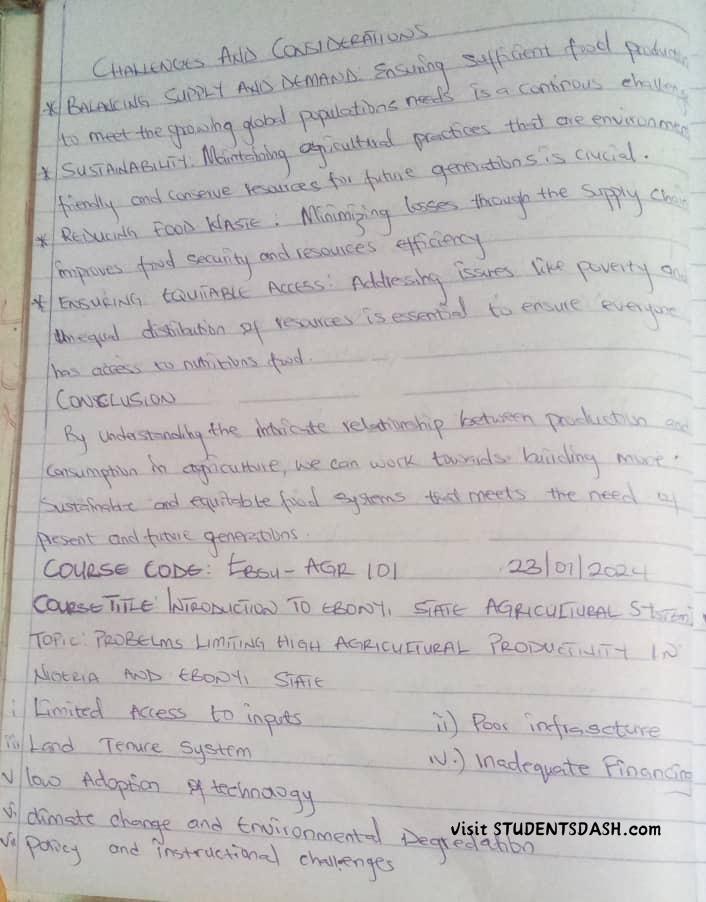 CHALLENGES AND CONSIDERATIONS
* BALANCING SUPPLY AND DEMAND: Ensuring sufficient food production
to meet the growing global populations needs is a continous challeng
* SUSTAINABILITY: Maintaining agricultural practices that are environmen
friendly and conserve resources for future generations is crucial.
* REDUCING FOOD WASTE: Minimizing losses through the supply chain
improves food security and resources efficiency
* ENSURING EQUITABLE ACCESS: Addressing issues like poverty and
unequal distibution of resources is essential to ensure everyone
has access to nutritions food.
CONCLUSION
By understanding the intricate relationship between production and
consumption in agriculture, we can work towards building more
sustainable and equitable food systems that meets the need of
present and future generations.
COURSE CODE: EBSU-AGR 101 23/01/2024
COURSE TITLE: INTRODUCTION TO EBONYI STATE AGRICULTURAL System
TOPIC: PROBELMS LIMITING HIGH AGRICULTURAL PRODUCTIVITY IN
NIGERIA AND EBONYI STATE
i Limited Access to inputs ii) Poor infrascture
iii Land Tenure System iv.) Inadequate Financing
v low Adoption of technology
vi climate change and Environmental Degredation
vii Policy and instructional challenges
visit STUDENTSDASH.com